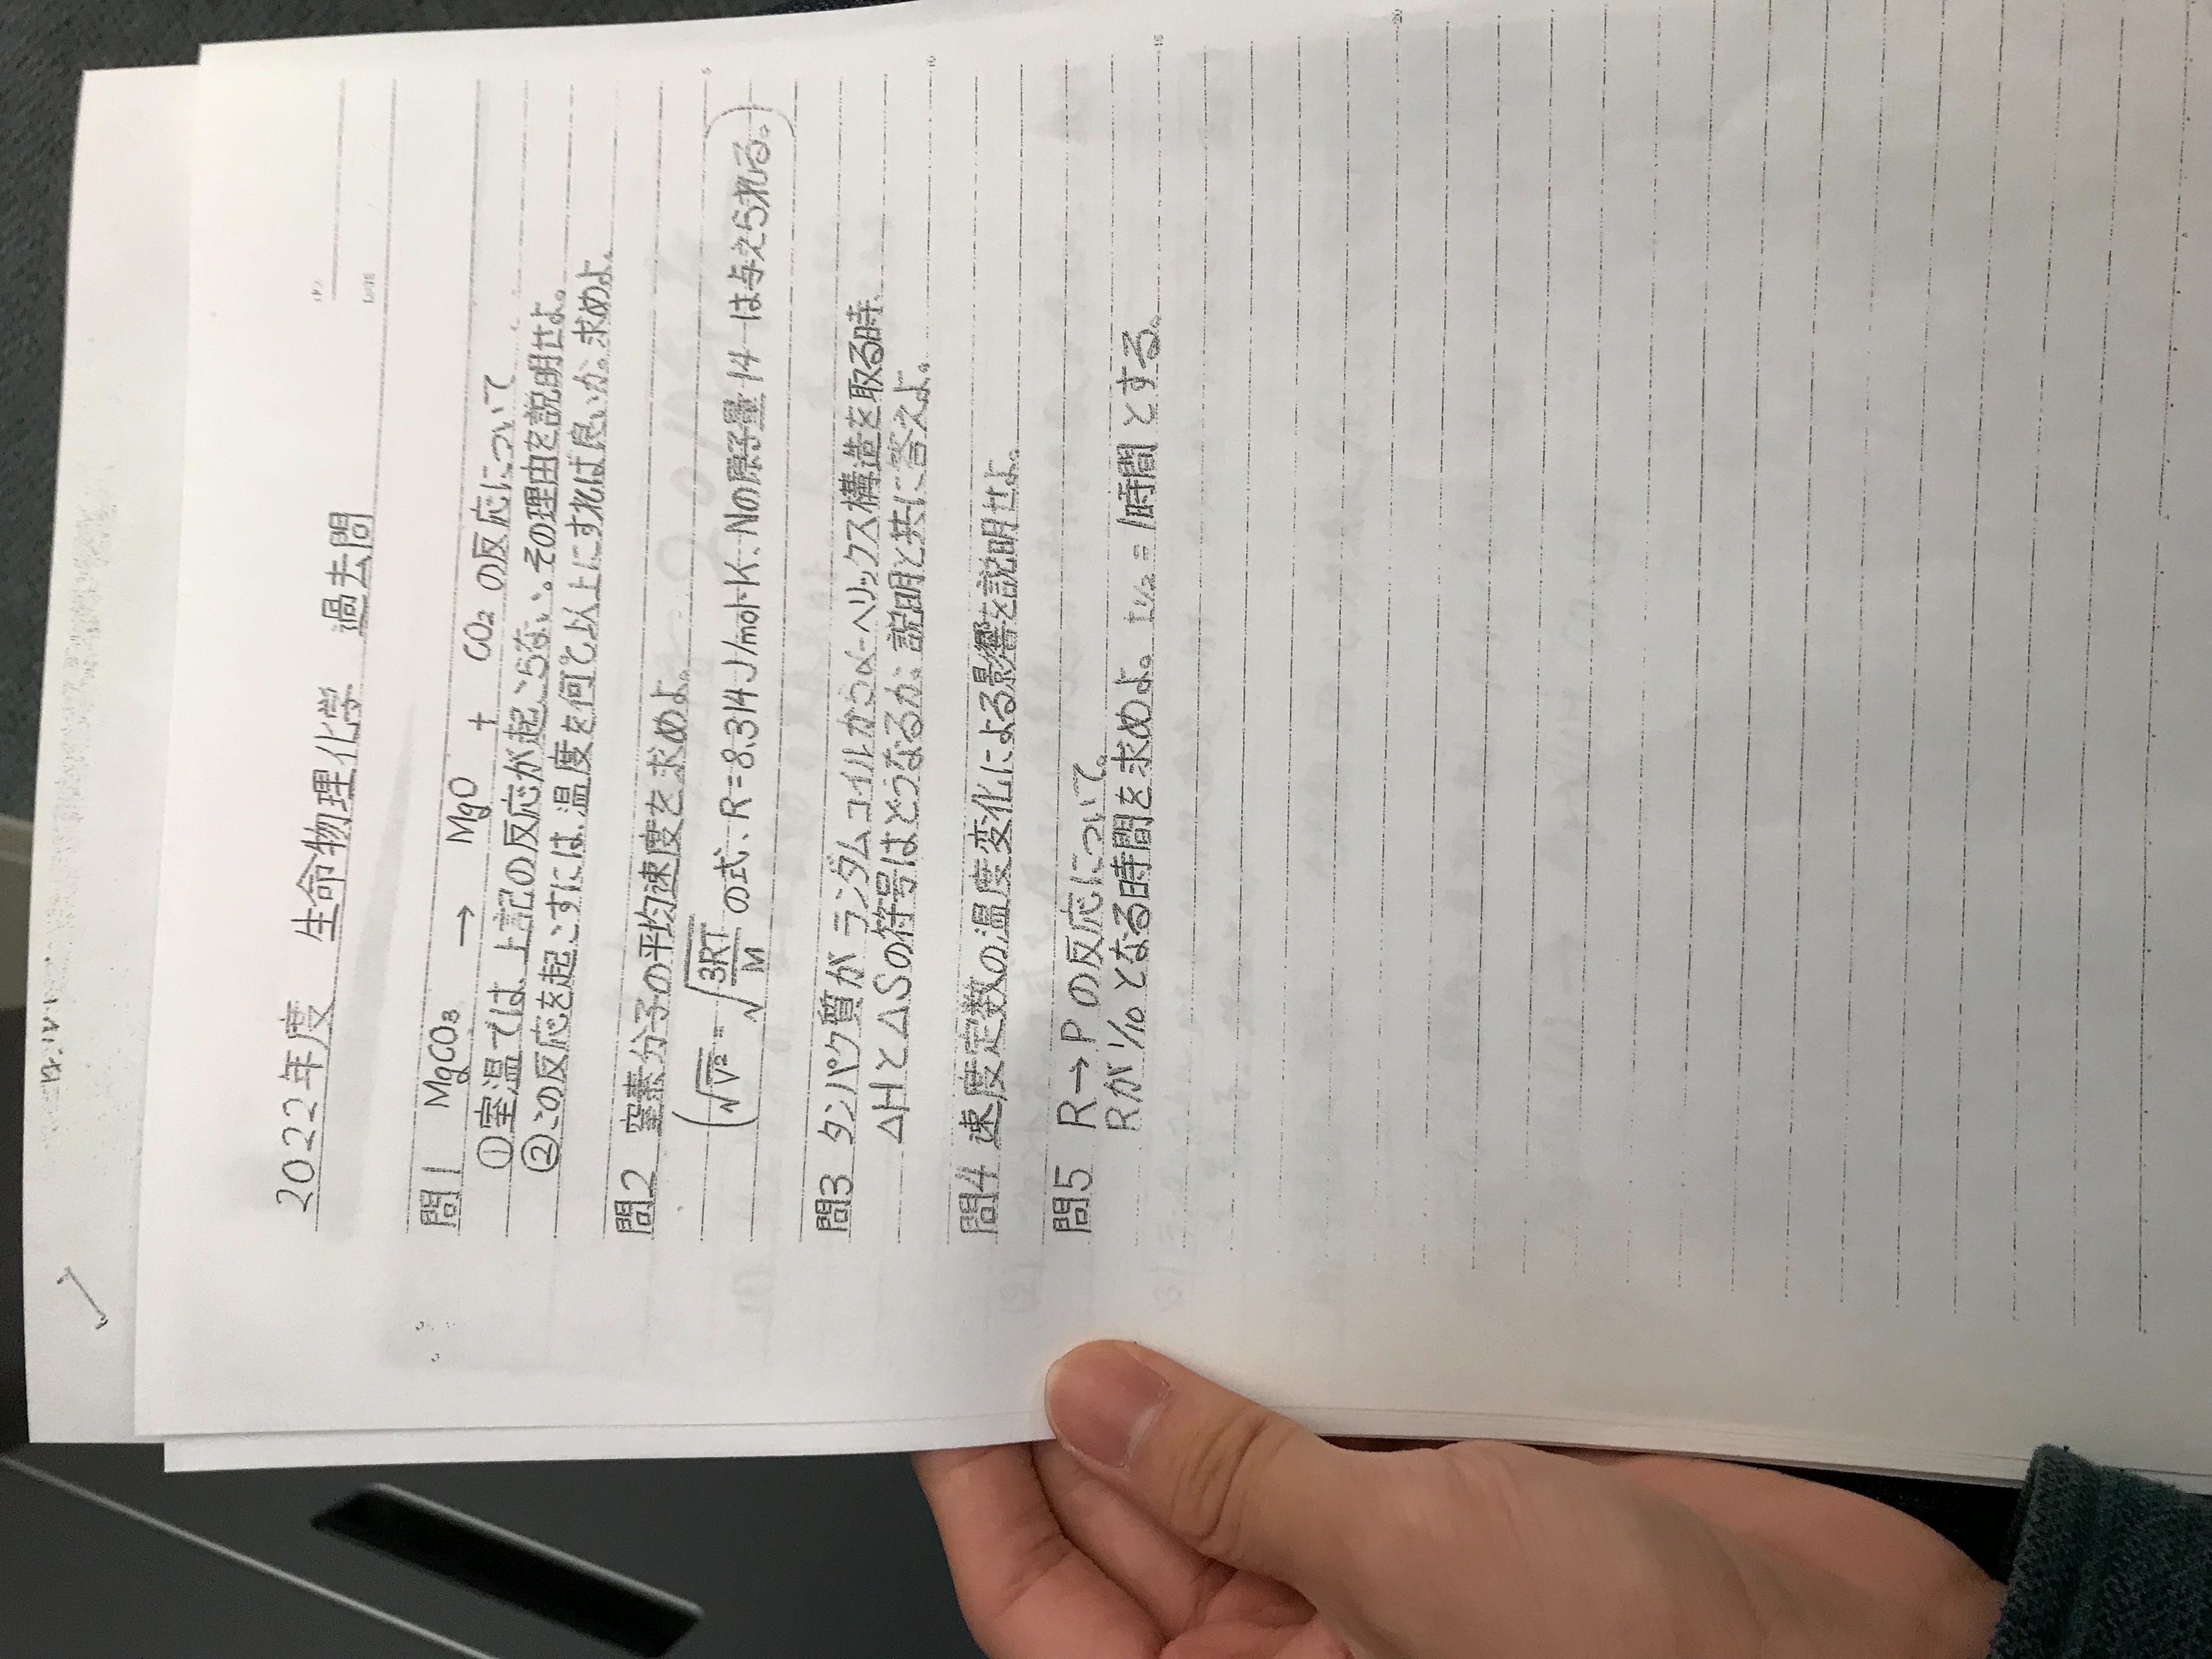 2022年度 生命物理化学 過去問
問1 MgCO₃ → MgO + CO₂ の反応について
①室温では、上記の反応が起こらない。その理由を説明せよ。
②この反応を起こすには、温度を何℃以上にすれば良いか。求めよ。
問2 窒素分子の平均速度を求めよ。
(√V² = √3RT/M の式、R=8.314J/mol・K、Nの原子量14 は与えられる。)
問3 タンパク質が ランダムコイルからα-ヘリックス構造を取る時、
ΔHとΔSの符号はどうなるか。説明と共に答えよ。
問4 速度定数の温度変化による影響を説明せよ。
問5 R→P の反応について。
Rが1/10となる時間を求めよ。t1/2=1時間とする。